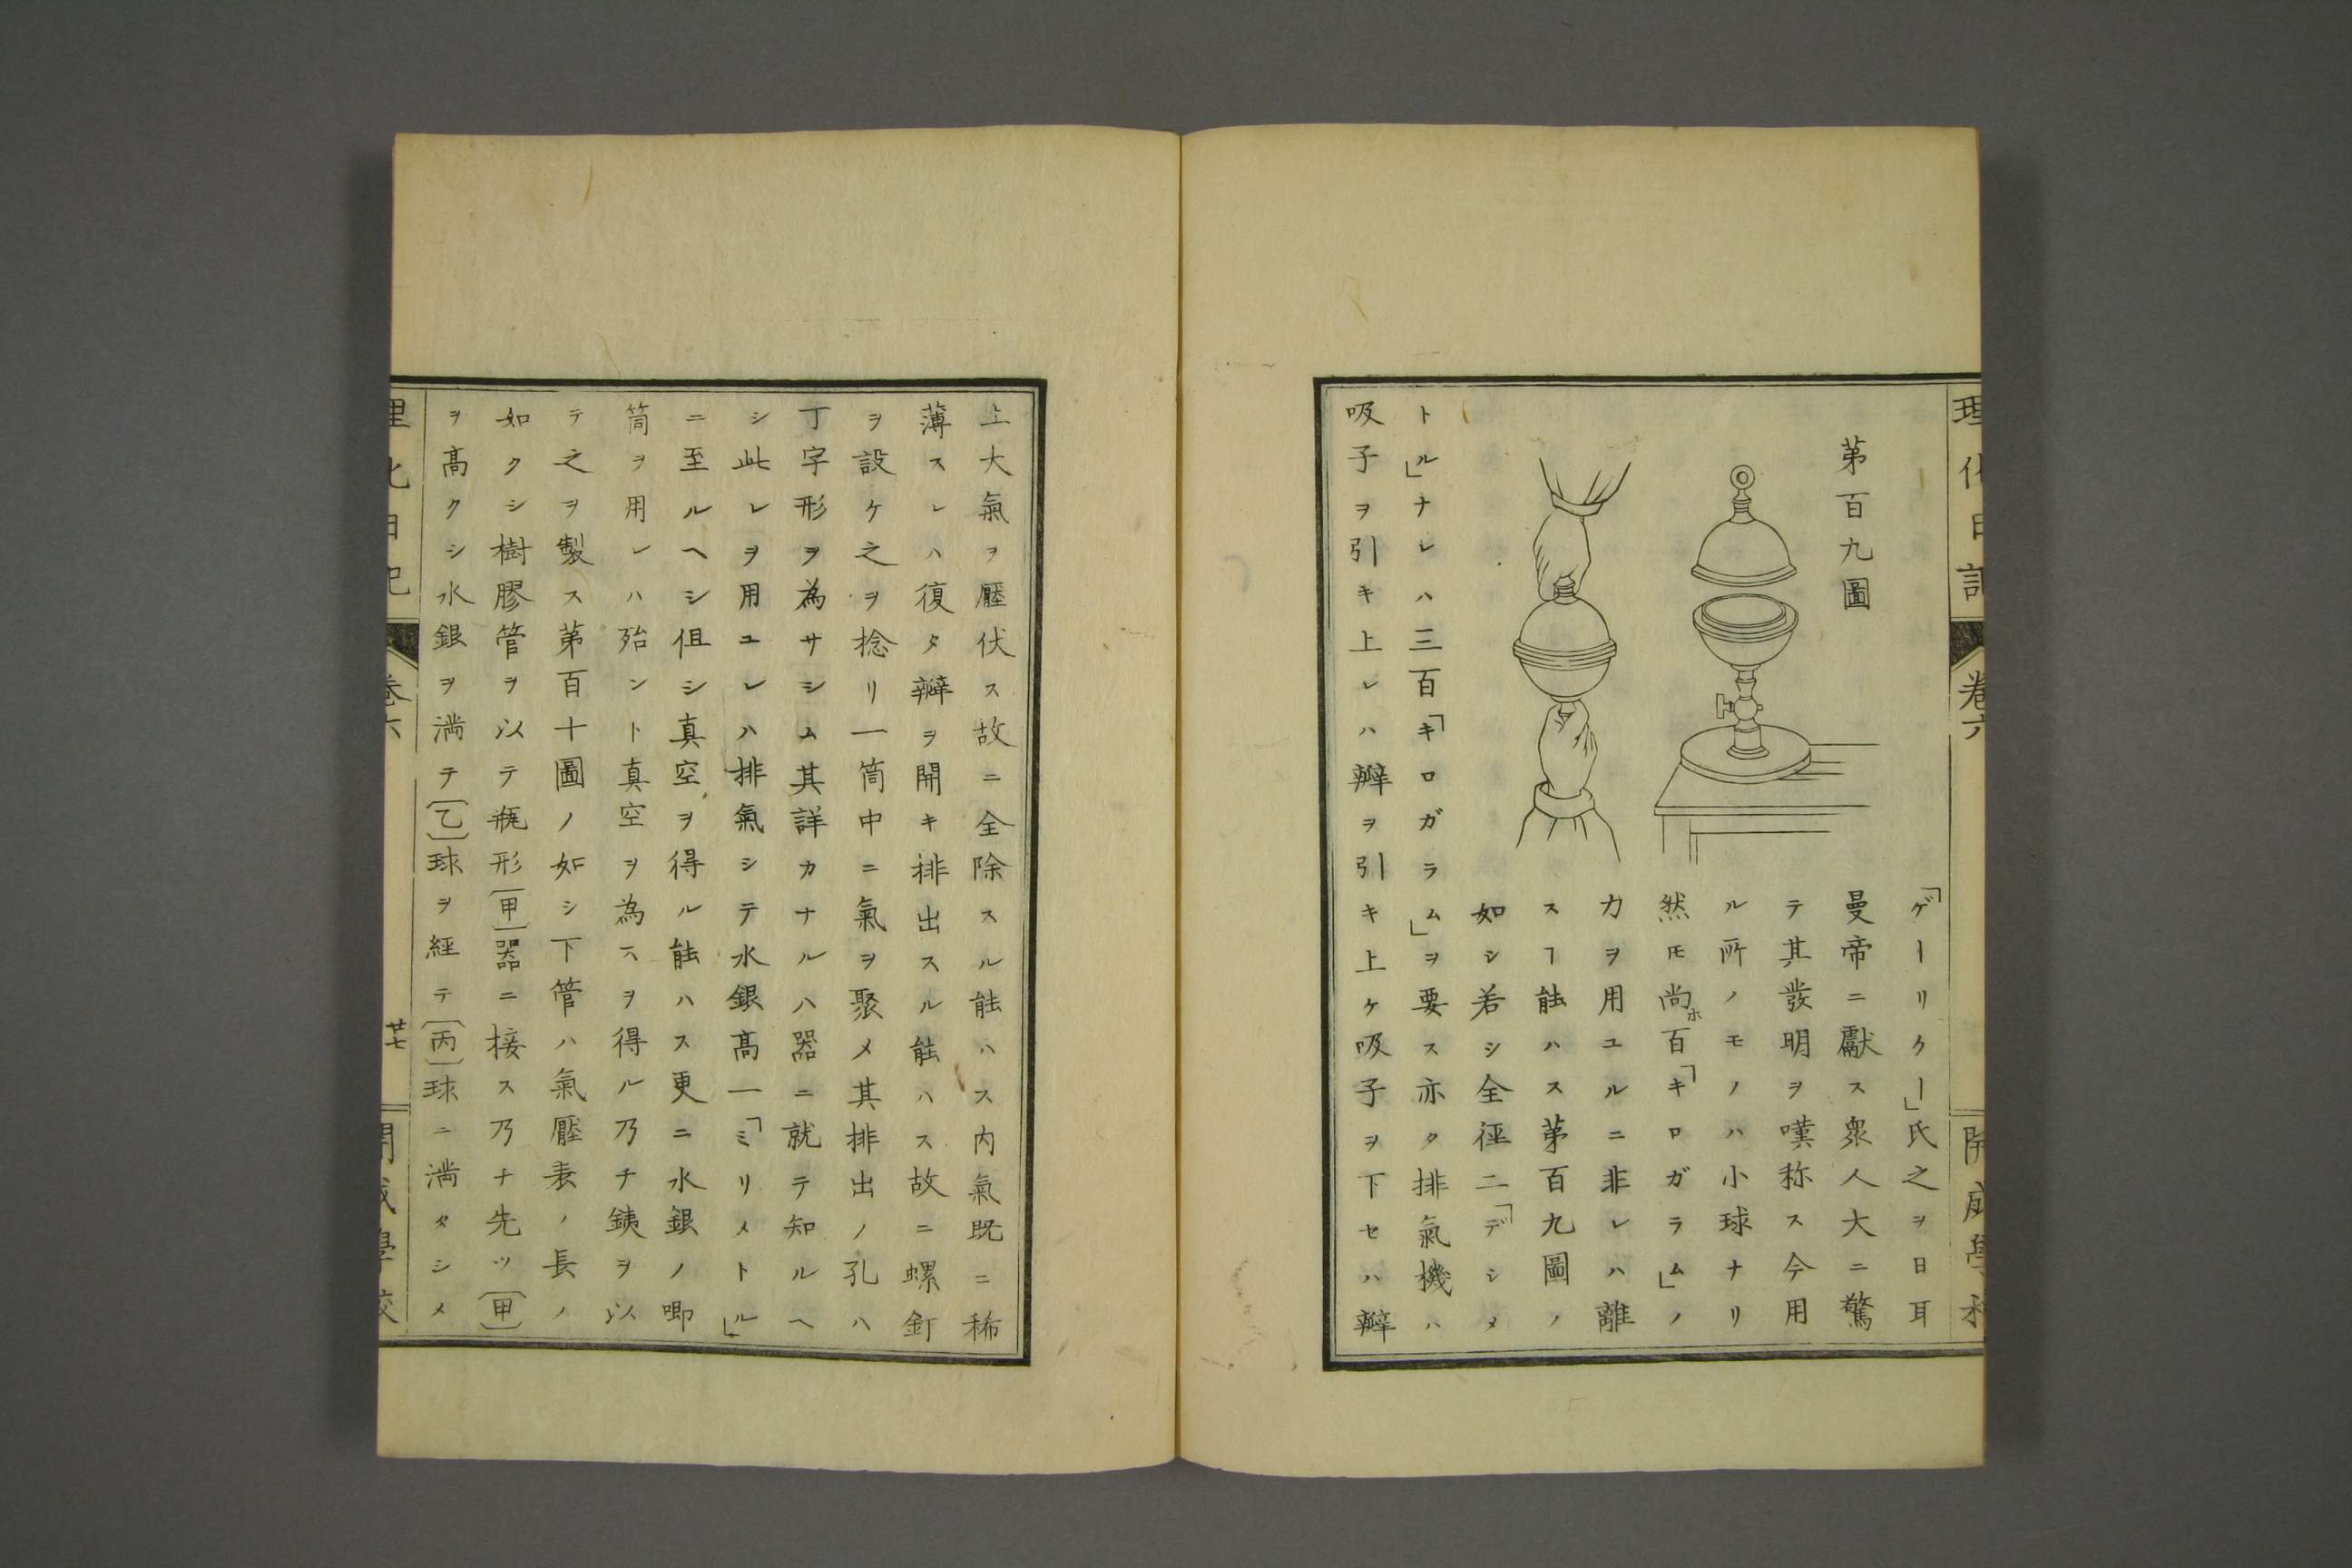 理化日記
巻六
開成學校
第百九圖
「ゲーリクー」氏之ヲ日耳
曼帝ニ獻ス衆人大ニ驚
テ其發明ヲ嘆称ス今用
ル所ノモノハ小球ナリ
然𪜈尚ホ百「キロガラム」ノ
力ヲ用ユルニ非レハ離
スヿ能ハス第百九圖ノ
如シ若シ全徑二「デシメ
トル」ナレハ三百「キロガラム」ヲ要ス亦タ排氣機ハ
吸子ヲ引キ上レハ瓣ヲ引キ上ケ吸子ヲ下セハ瓣
上大氣ヲ壓伏ス故ニ全除スル能ハス内氣既ニ稀
薄スレハ復タ瓣ヲ開キ排出スル能ハス故ニ螺釘
ヲ設ケ之ヲ捻リ一筒中ニ氣ヲ聚メ其排出ノ孔ハ
丁字形ヲ為サシム其詳カナルハ器ニ就テ知ルヘ
シ此レヲ用ユレハ排氣シテ水銀高一「ミリメトル」
ニ至ルヘシ伹シ真空ヲ得ル能ハス更ニ水銀ノ喞
筒ヲ用レハ殆ント真空ヲ為スヲ得ル乃チ銕ヲ以
テ之ヲ製ス第百十圖ノ如シ下管ハ氣壓表ノ長ノ
如クシ樹膠管ヲ以テ瓶形〔甲〕器ニ接ス乃チ先ツ〔甲〕
ヲ髙クシ水銀ヲ満テ〔乙〕球ヲ経テ〔丙〕球ニ満タシメ
理化日記
巻六
廿七
開成學校